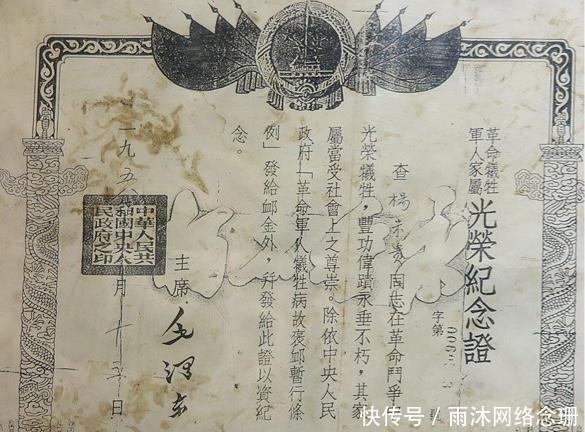 革命犧牲
軍人家屬
光榮紀念證
字第
查楊 同志在革命鬥爭
光榮犧牲,豐功偉蹟永垂不朽,其家
屬當受社會上之尊崇。除依中央人民
政府「革命軍人犧牲病故褒卹暫行條
例」發給卹金外,并發給此證以資紀
念。
主席 毛澤東
一九五 月十 日
中華人民共
和國中央人
民政府之印
快传号 / 雨沐网络念珊